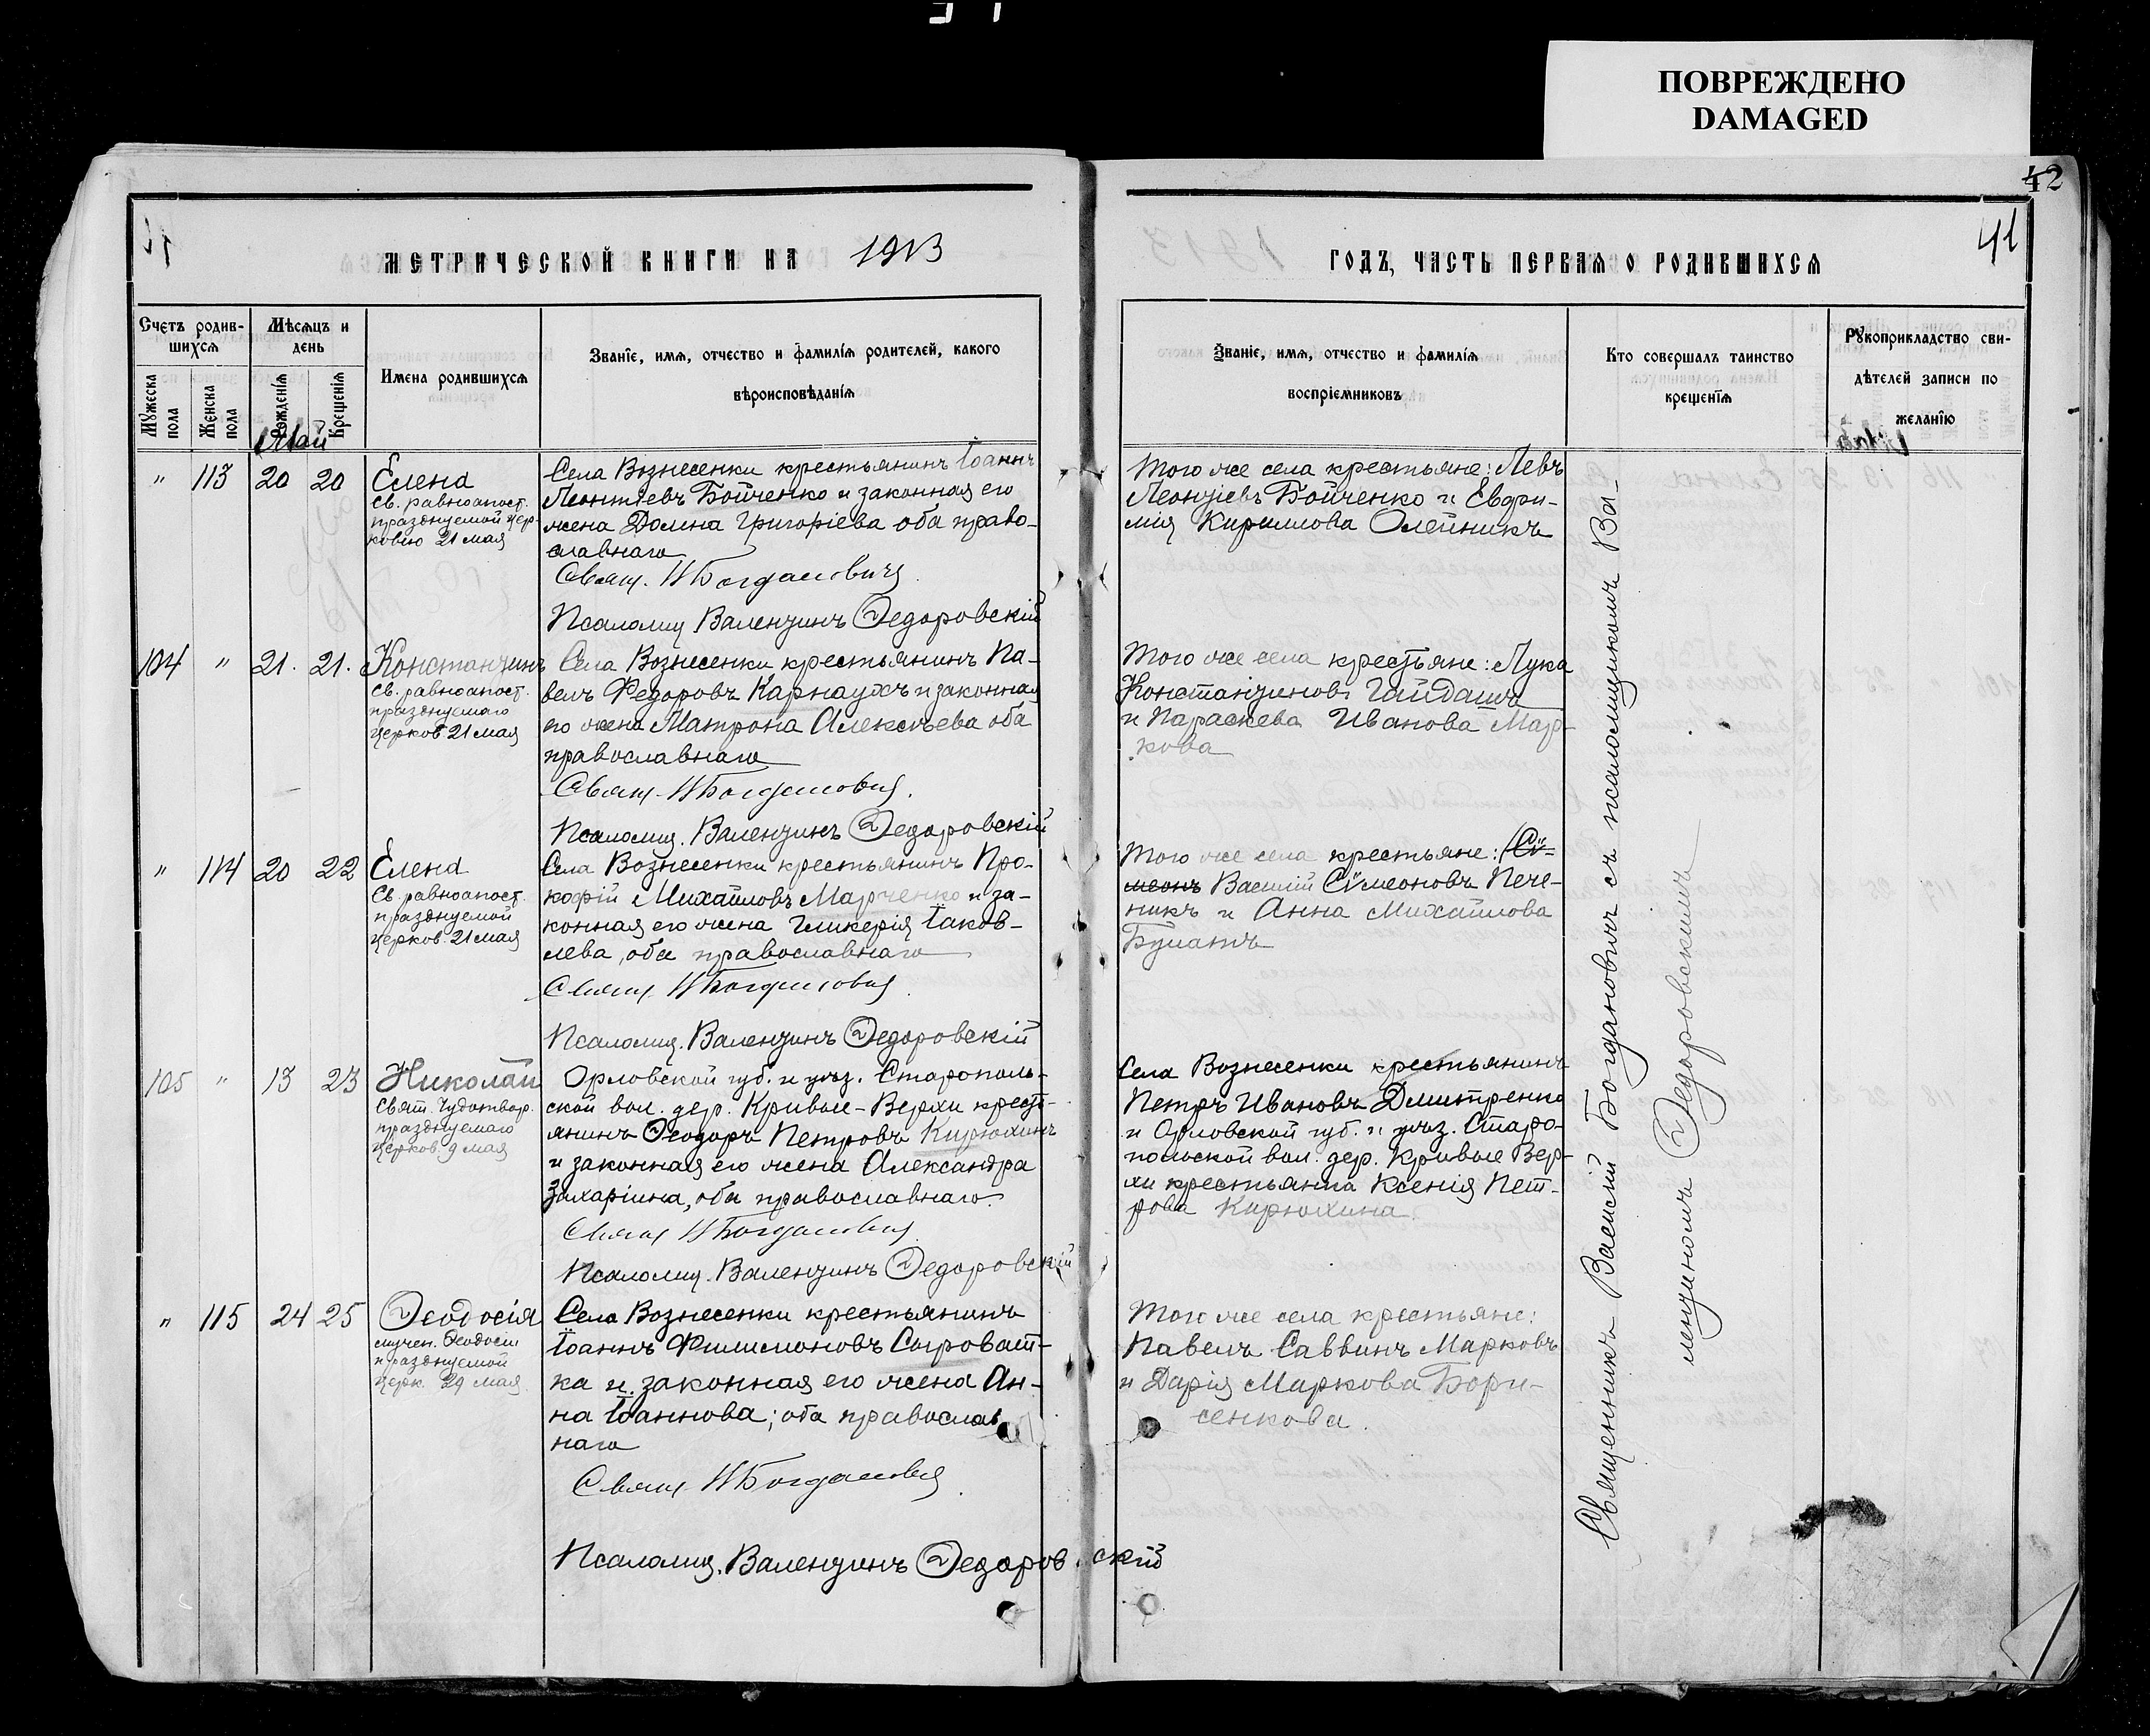 ПОВРЕЖДЕНО
DAMAGED
42
41
МЕТРИЧЕСКОЙ КНИГИ НА 1913
ГОДЪ, ЧАСТЬ ПЕРВАЯ О РОДИВШИХСЯ
Счетъ родив-
шихся
Мужеска пола
Женска пола
Мѣсяцъ и
день
Рожденія
Крещенія
Имена родившихся
Званіе, имя, отчество и фамилія родителей, какого
вѣроисповѣданія
Званіе, имя, отчество и фамилія
воспріемниковъ
Кто совершалъ таинство
крещенія
Рукоприкладство сви-
дѣтелей записи по
желанію
Май
" 113 20 20 Елена
Св. равноапост.
празднуемой цер-
ковію 21 мая
Села Вознесенки крестьянинъ Іоаннъ
Леонтіевъ Бойченко и законная его
жена Домна Григоріева оба право-
славнаго
Свящ. В Богдановичъ
Псаломщ Валентинъ Ѳедоровскій
Того же села крестьяне: Левъ
Леонтіевъ Бойченко и Евфи-
мія Кириллова Олейникъ
104 " 21. 21. Константинъ
Св. равноапост.
празднуемаго
церков. 21 мая
Села Вознесенки крестьянинъ Па-
велъ Федоровъ Карнаухъ и законная
его жена Матрона Алексѣева оба
православнаго
Свящ. В Богдановичъ.
Псаломщ. Валентинъ Ѳедоровскій
Того же села крестьяне: Лука
Константиновъ Гайдашъ
и Параскева Иванова Мар-
кова
" 114 20 22 Елена
Св. равноапост.
празднуемой
церков. 21 мая
Села Вознесенки крестьянинъ Про-
кофій Михайловъ Марченко и за-
конная его жена Гликерія Іаков-
лева, оба православнаго
Свящ. В Богдановичъ
Псаломщ. Валентинъ Ѳедоровскій
Того же села крестьяне: (Сѵ-
меонъ Василій Сѵмеоновъ Пече-
никъ и Анна Михайлова
Булатъ
105 " 13 23 Николай
Свят. Чудотвор.
празднуемаго
церков. 9 мая
Орловской губ. и уѣз. Старополь-
ской вол. дер. Кривые-Верхи кресть-
янинъ Ѳеодоръ Петровъ Кирюхинъ
и законная его жена Александра
Захаріина, оба православнаго.
Свящ В Богдановичъ
Псаломщ. Валентинъ Ѳедоровскій
Села Вознесенки крестьянинъ
Петръ Ивановъ Дмитренко
и Орловской губ. и уѣз. Старо-
польской вол. дер. Кривые Вер-
хи крестьянка Ксенія Пет-
рова Кирюхина.
" 115 24 25 Ѳеодосія
мучен. Ѳеодосіи
празднуемой
церк. 29 мая
Села Вознесенки крестьянинъ
Іоаннъ Филимоновъ Сыроват-
ка и законная его жена Ан-
на Іоаннова; оба православ
наго
Свящ В Богдановичъ.
Псаломщ. Валентинъ Ѳедоровскій
Того же села крестьяне:
Павелъ Саввинъ Марковъ
и Дарія Маркова Бори-
сенкова.
Священникъ Василій Богдановичъ съ псаломщикомъ Ва-
лентиномъ Ѳедоровскимъ